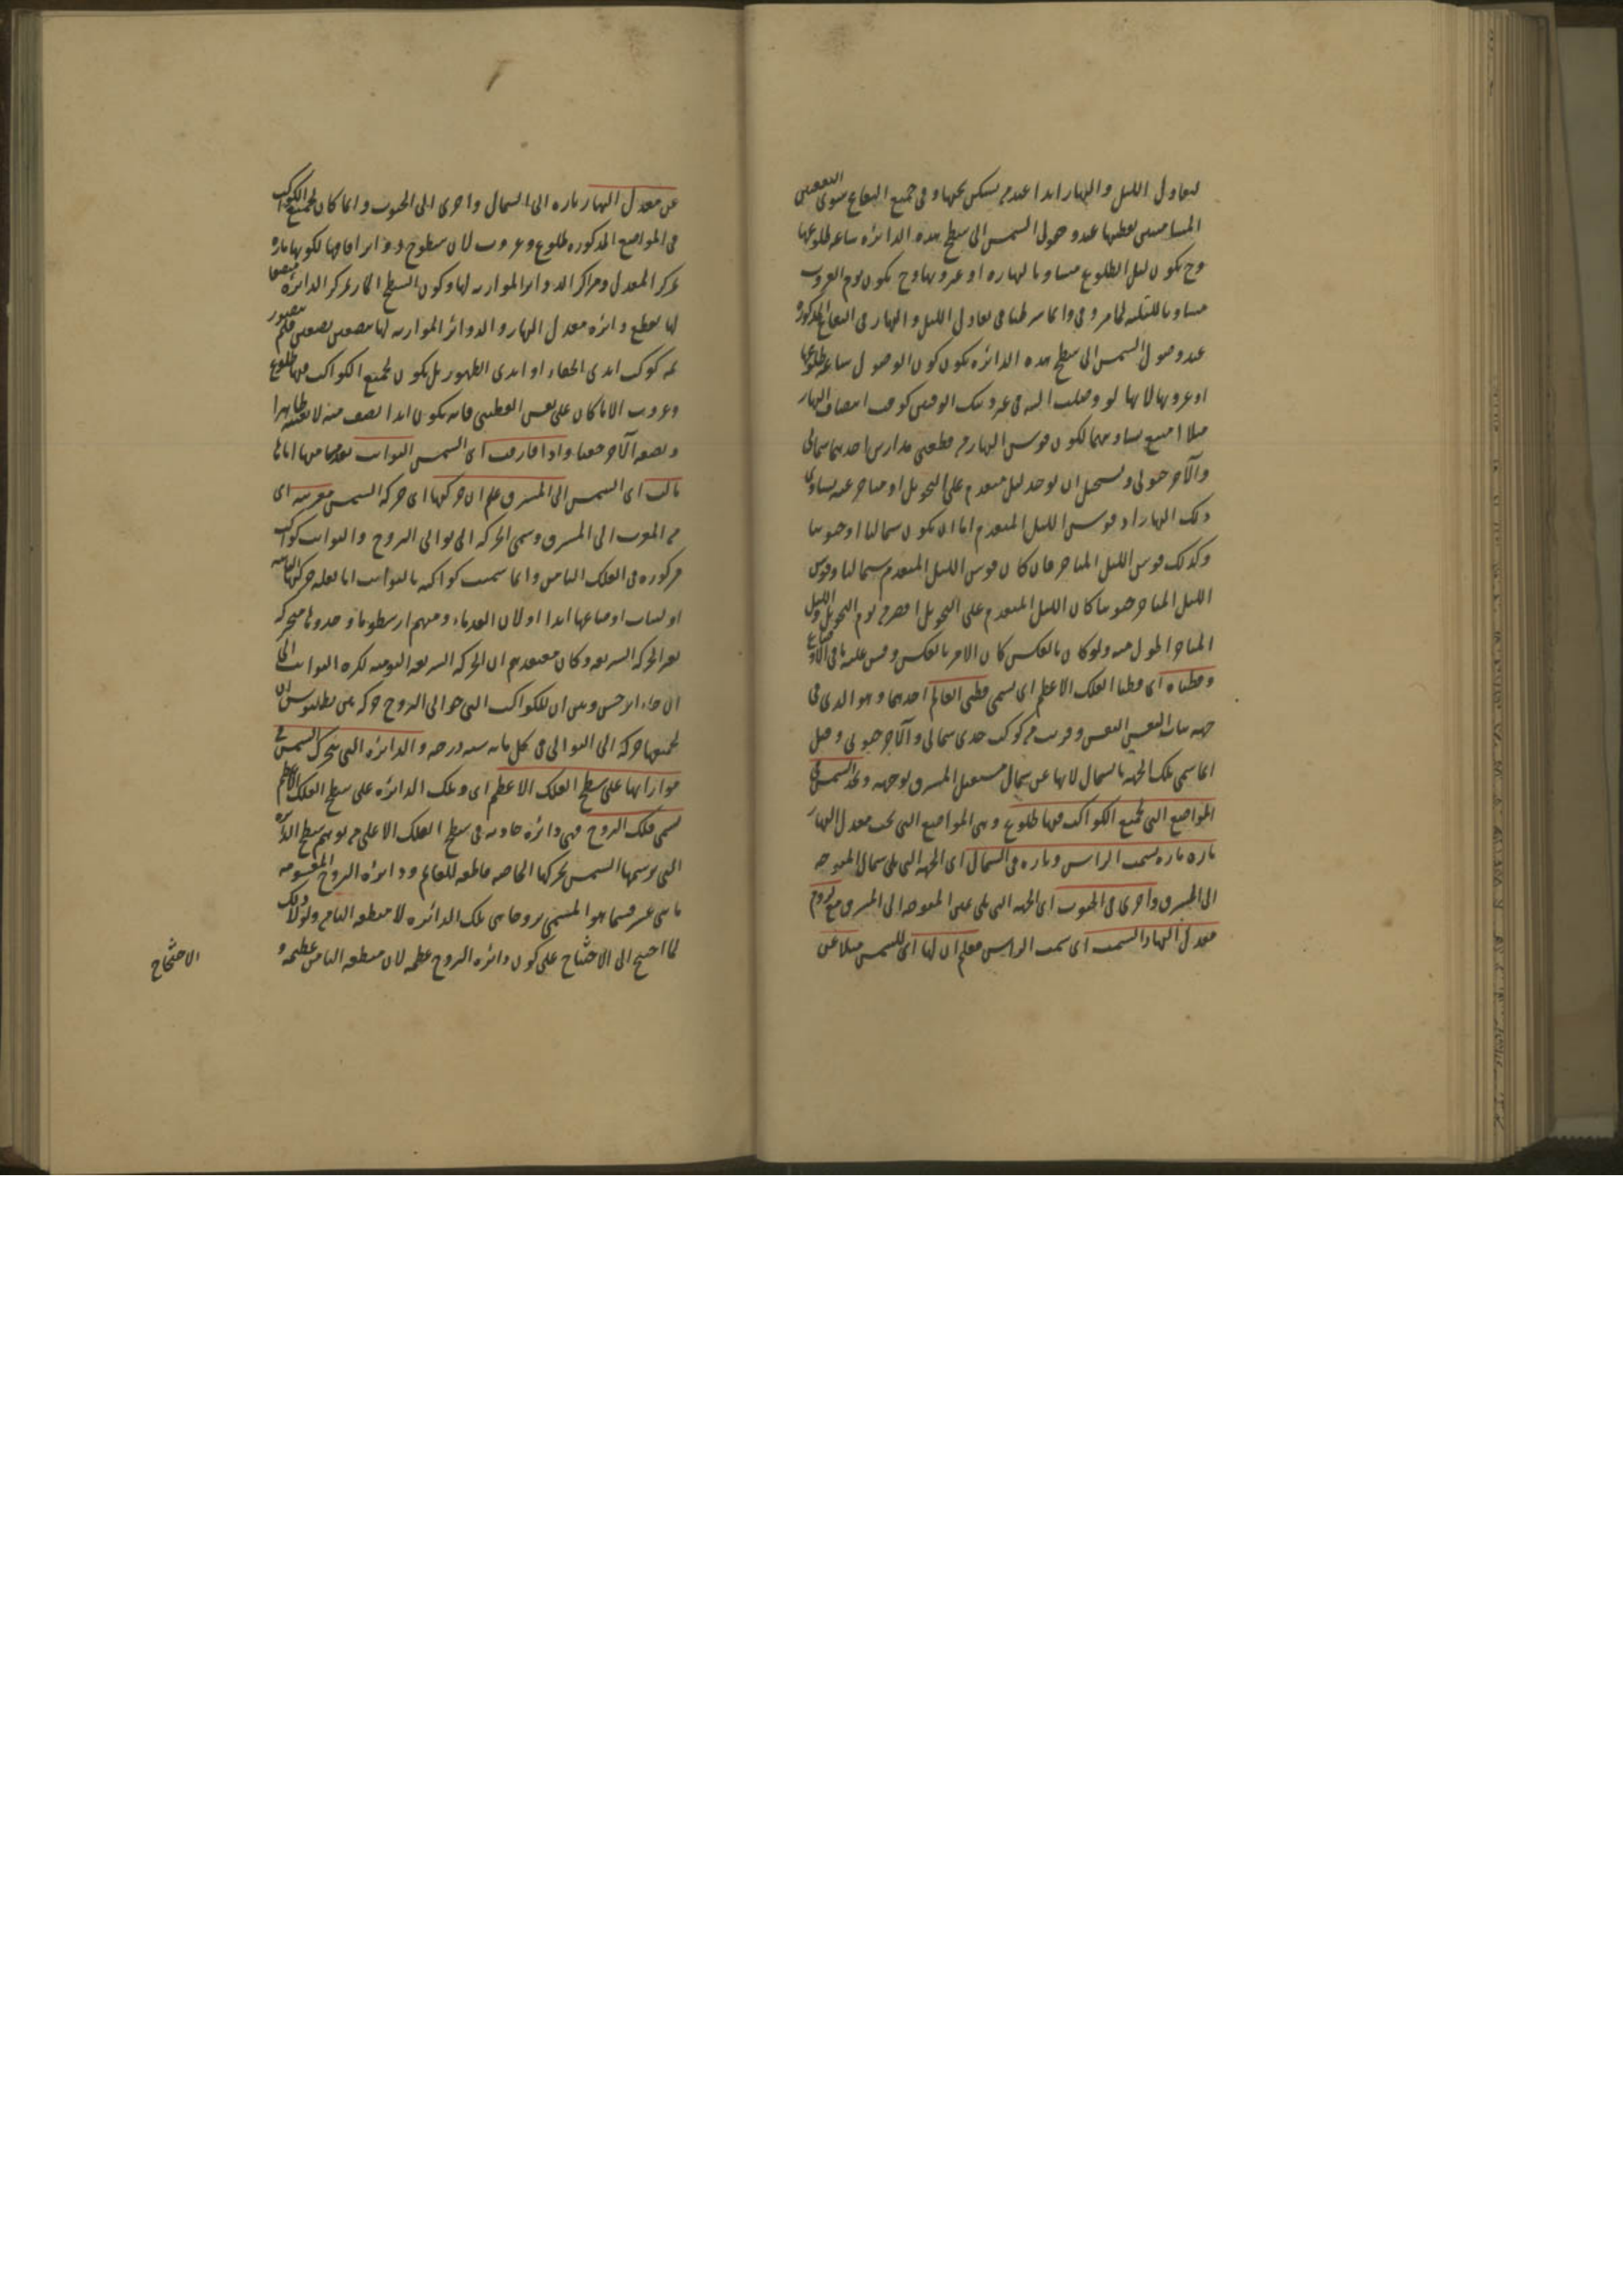 لتعادل الليل والنهار ابدا عند من يسكن تحتها وفى جميع البقاع سوى البقعتين
المسامتتين لقطبيها عند وصول الشمس الى سطح هذه الدائره ساعه طلوعها
وح يكون ليل الطلوع مساويا لنهاره او غروبها وح يكون يوم الغروب
مساويا لليلته لما مر وفى وانما شرطنا فى تعادل الليل والنهار فى البقاع المذكوره
عند وصول الشمس الى سطح هذه الدائره يكون كون الوصول ساعه طلوعها
او غروبها لانها لو وصلت اليه فى غير ذينك الوقتين كوقت انتصاف النهار
مثلا امتنع تساويهما لكون قوس النهار من قطعتى مدارين احدهما شمالى
والآخر جنوبى ويستحيل ان يوجد ليل متقدم على التحويل او متاخر عنه يساوى
ذلك النهار اذ قوس الليل المتقدم اما ان يكون شماليا او جنوبيا
وكذلك قوس الليل المتاخر فان كان قوس الليل المتقدم شماليا وقوس
الليل المتاخر جنوبيا كان الليل المتقدم على التحويل اقصر من يوم التحويل والليل
المتاخر اطول منه ولو كان بالعكس كان الامر بالعكس وقس عليه باقى الاوضاع
وقطباه اى قطبا الفلك الاعظم اى يسمى قطبى العالم احدهما وهو الذى فى
جهه بنات النعش وقريب من كوكب جدى شمالى والآخر جنوبى وقيل
انما سمى تلك الجهه بالشمال لانها عن شمال مستقبل المشرق بوجهه ونجد الشمس فى
المواضع التى لجميع الكواكب فيها طلوع وهى المواضع التى تحت معدل النهار
تاره تاره بسمت الراس وتاره فى الشمال اى الجهه التى يلى شمال المتوجه
الى المشرق واخرى فى الجنوب اى الجهه التى يلى يمين المتوجه الى المشرق مع لزوم
معدل النهار السمت اى سمت الراس فعلم ان لها اى للشمس ميلا عن
عن معدل النهار تاره الى الشمال واخرى الى الجنوب وانما كان لجميع الكواكب
فى المواضع المذكوره طلوع وغروب لان سطوح دوائر افاقها لكونها ماره
بمركز المعدل ومراكز الدوائر الموازيه لها وكون السطح المار بمركز الدائره
لها يقطع دائره معدل النهار والدوائر الموازيه لها بنصفين نصفين فلم يتصور
ثمه كوكب ابدى الخفاء او ابدى الظهور بل يكون لجميع الكواكب فيها طلوع
وغروب الا ما كان على نفس القطبين فانه يكون ابدا نصف منه لا بعينه ظاهرا
ونصفه الآخر خفيا واذا فارقت اى الشمس الثوابت بعدها منها اياما
مالت اى الشمس الى المشرق علم ان حركتها اى حركه الشمس مغربيه اى
من المغرب الى المشرق وسمى الحركه الى توالى البروج والثوابت كواكب
مركوزه فى الفلك الثامن وانما سميت كواكبه بالثوابت اما لقله حركتها الثانيه
او لثبات اوضاعها ابدا او لان القدماء ومنهم ارسطو ما وجدوها متحركه
بغير الحركه السريعه وكان معتقدهم ان الحركه السريعه اليوميه لكره الثوابت الى
ان جاء ابرخس وبين ان للكواكب التى حوالى البروج حركه ثم بين بطلميوس ان
لجميعها حركه الى التوالى فى كل مايه سنه درجه والدائره التى يتحرك الشمس فى
موازاتها على سطح الفلك الاعظم اى وتلك الدائره على سطح الفلك الاعظم
تسمى فلك البروج فهى دائره حادثه فى سطح الفلك الاعلى من توهم سطح الدائره
التى ترسمها الشمس بحركتها الخاصه قاطعه للعالم ودائره البروج المقسومه
باثنى عشر قسما هو المسمى بروجا هى تلك الدائره لا منطقه الثامن ولولا ذلك
لما احتيج الى الاحتجاج على كون دائره البروج عظيمه لان منطقه الثامن عظيمه و
الاحتجاج